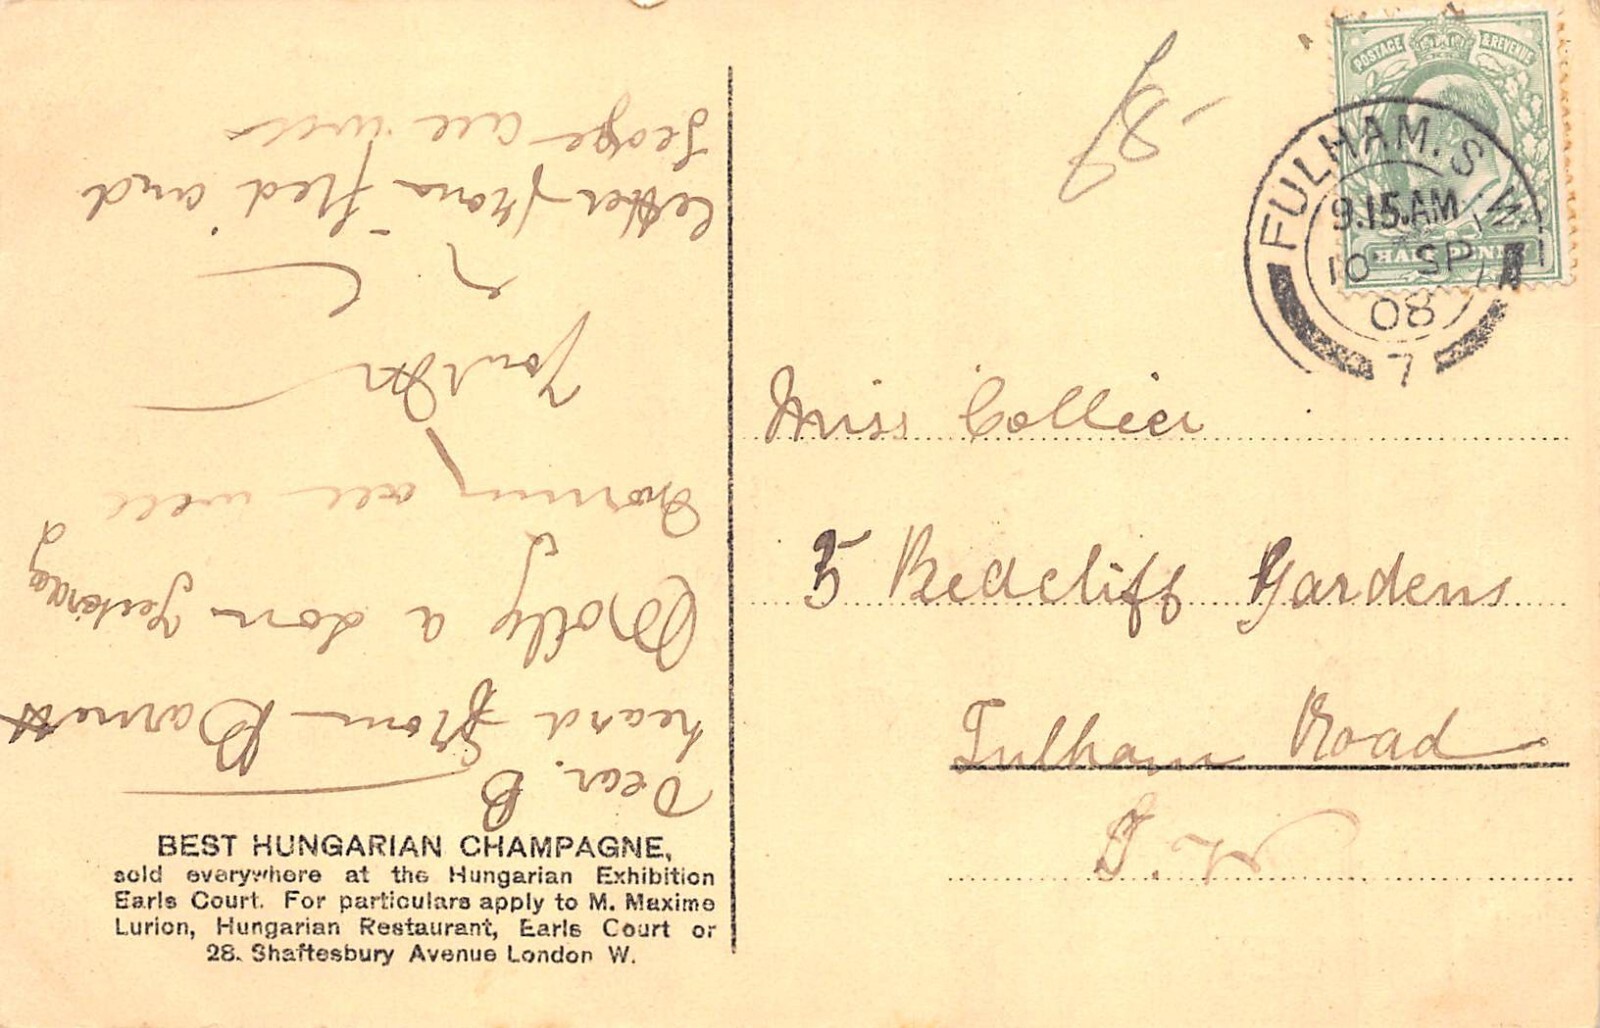 Dear. B
heard from Barnett
Molly a son Yesterday
morning all well
letter from Fred and
George all well
BEST HUNGARIAN CHAMPAGNE,
sold everywhere at the Hungarian Exhibition
Earls Court. For particulars apply to M. Maxime
Lurion, Hungarian Restaurant, Earls Court or
28. Shaftesbury Avenue London W.
POSTAGE & REVENUE
HALF PENNY
FULHAM. S.W.
9.15.AM
10 SP
08
7
Miss Collier
5 Redcliff Gardens
Fulham Road
S. W